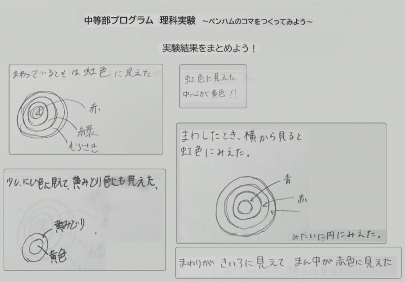 中等部プログラム 理科実験 ～ベンハムのコマをつくってみよう～
実験結果をまとめよう！
まわっているときは 虹色 に見えた
赤
緑
むらさき
虹色に見えた
中心が黄色!!
まわしたとき、横から見ると
虹色にみえた。
青
赤
みたいに円にみえた。
少し、にじ色に見えて、黄みどり色にも見えた、
黄みどり
黄色
まわりが きいろに見えて まん中が赤色に見えた